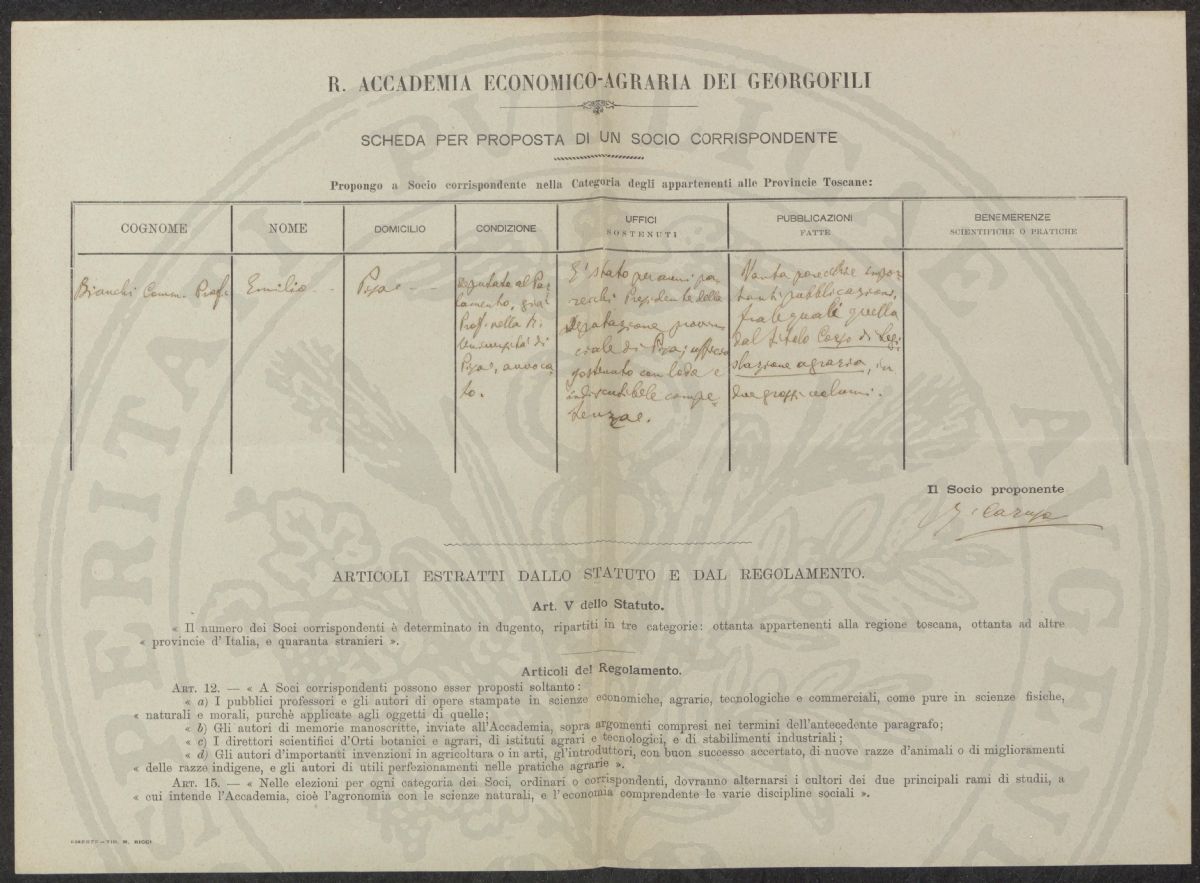 R. ACCADEMIA ECONOMICO-AGRARIA DEI GEORGOFILI
SCHEDA PER PROPOSTA DI UN SOCIO CORRISPONDENTE
Propongo a Socio corrispondente nella Categoria degli appartenenti alle Provincie Toscane:
COGNOME
NOME
DOMICILIO
CONDIZIONE
UFFICI
SOSTENUTI
PUBBLICAZIONI
FATTE
BENEMERENZE
SCIENTIFICHE O PRATICHE
Bianchi Comm. Prof.
Emilio
Pisa
Deputato al Par
lamento, già
Prof. nella R.
Università di
Pisa, avvoca
to.
E' stato per anni pa
recchi Presidente della
Deputazione provin
ciale di Pisa; ufficio
sostenuto con lode e
indiscutibile compe
tenza.
Vanta parecchie impor
tanti pubblicazioni,
fra le quali quella
dal titolo Corso di Legi
slazione agraria, in
due grossi volumi.
Il Socio proponente
Caruso
ARTICOLI ESTRATTI DALLO STATUTO E DAL REGOLAMENTO.
Art. V dello Statuto.
« Il numero dei Soci corrispondenti è determinato in dugento, ripartiti in tre categorie: ottanta appartenenti alla regione toscana, ottanta ad altre
« provincie d'Italia, e quaranta stranieri ».
Articoli del Regolamento.
ART. 12. — « A Soci corrispondenti possono esser proposti soltanto:
« a) I pubblici professori e gli autori di opere stampate in scienze economiche, agrarie, tecnologiche e commerciali, come pure in scienze fisiche,
« naturali e morali, purchè applicate agli oggetti di quelle;
« b) Gli autori di memorie manoscritte, inviate all'Accademia, sopra argomenti compresi nei termini dell'antecedente paragrafo;
« c) I direttori scientifici d'Orti botanici e agrari, di istituti agrari e tecnologici, e di stabilimenti industriali;
« d) Gli autori d'importanti invenzioni in agricoltura o in arti, gl'introduttori, con buon successo accertato, di nuove razze d'animali o di miglioramenti
« delle razze indigene, e gli autori di utili perfezionamenti nelle pratiche agrarie ».
ART. 15. — « Nelle elezioni per ogni categoria dei Soci, ordinari o corrispondenti, dovranno alternarsi i cultori dei due principali rami di studii, a
« cui intende l'Accademia, cioè l'agronomia con le scienze naturali, e l'economia comprendente le varie discipline sociali ».
FIRENZE — TIP. M. RICCI